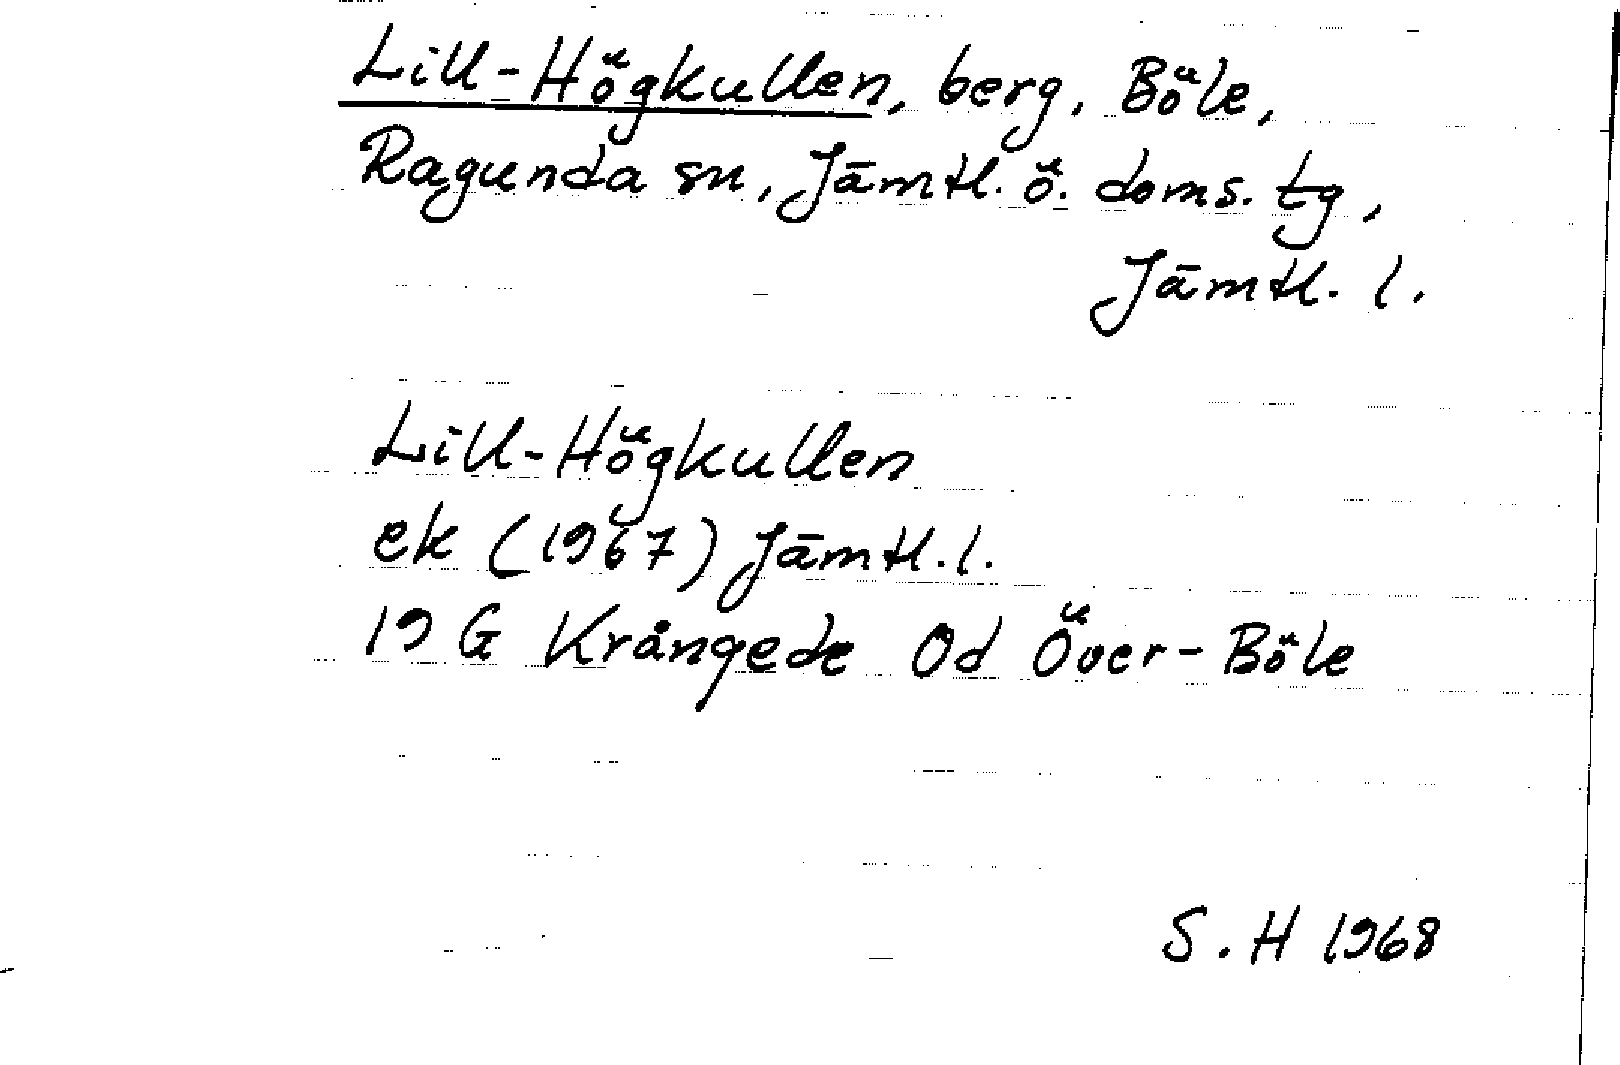 Lill-Högkullen, berg, Böle,
Ragunda sn, Jämtl. ö. doms. tg,
Jämtl. l.
Lill-Högkullen
ek (1967) Jämtl. l.
19 G Krångede 0d Över-Böle
S. H 1968